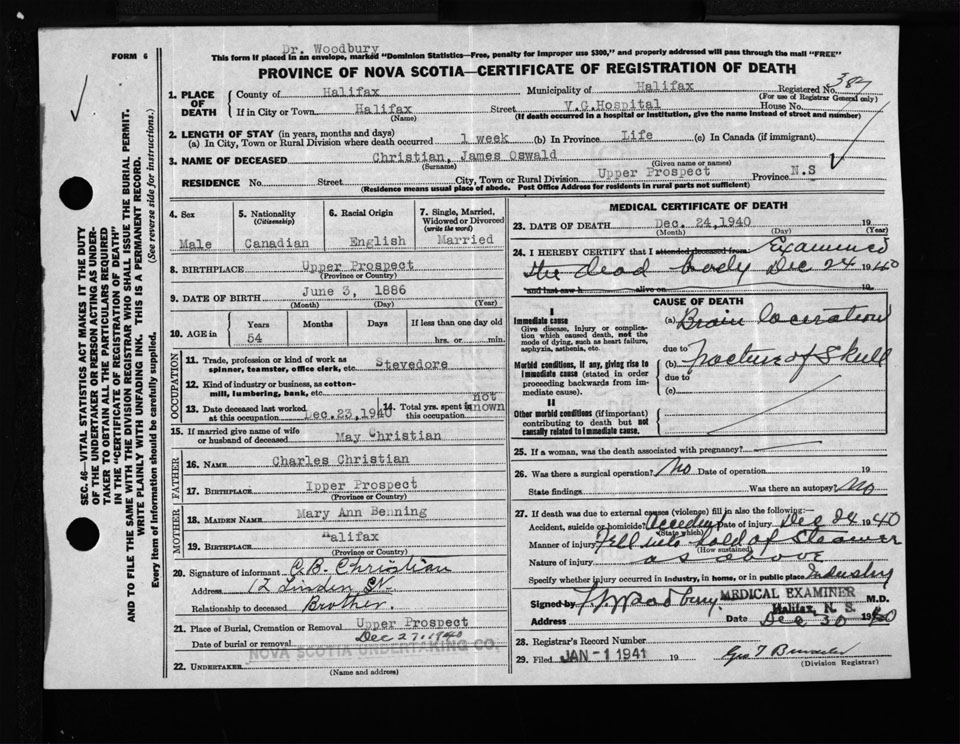 Dr. Woodbury
FORM 6
This form if placed in an envelope, marked "Dominion Statistics—Free, penalty for improper use $300," and properly addressed will pass through the mail "FREE"
PROVINCE OF NOVA SCOTIA—CERTIFICATE OF REGISTRATION OF DEATH
SEC. 46—VITAL STATISTICS ACT MAKES IT THE DUTY
OF THE UNDERTAKER OR PERSON ACTING AS UNDER-
TAKER TO OBTAIN ALL THE PARTICULARS REQUIRED
IN THE "CERTIFICATE OF REGISTRATION OF DEATH"
AND TO FILE THE SAME WITH THE DIVISION REGISTRAR WHO SHALL ISSUE THE BURIAL PERMIT.
WRITE PLAINLY WITH UNFADING INK. THIS IS A PERMANENT RECORD.
Every item of information should be carefully supplied. (See reverse side for instructions.)
1. PLACE OF DEATH
County of Halifax Municipality of Halifax Registered No. 387
(For use of Registrar General only)
If in City or Town Halifax Street V.G.Hospital House No.
(Name) (If death occurred in a hospital or institution, give the name instead of street and number)
2. LENGTH OF STAY (in years, months and days)
(a) In City, Town or Rural Division where death occurred 1 week (b) In Province Life (c) In Canada (if immigrant)
3. NAME OF DECEASED Christian, James Oswald
(Surname) (Given name or names)
RESIDENCE No. Street City, Town or Rural Division Upper Prospect Province N.S
(Residence means usual place of abode. Post Office Address for residents in rural parts not sufficient)
4. Sex
Male
5. Nationality
(Citizenship)
Canadian
6. Racial Origin
English
7. Single, Married,
Widowed or Divorced
(write the word)
Married
8. BIRTHPLACE Upper Prospect
(Province or Country)
9. DATE OF BIRTH June 3, 1886
(Month) (Day) (Year)
10. AGE in
Years Months Days If less than one day old
54 hrs. or min.
OCCUPATION
11. Trade, profession or kind of work as
spinner, teamster, office clerk, etc. Stevedore
12. Kind of industry or business, as cotton-
mill, lumbering, bank, etc.
13. Date deceased last worked
at this occupation Dec.23,1940
14. Total yrs. spent in
this occupation not known
15. If married give name of wife
or husband of deceased May Christian
FATHER
16. NAME Charles Christian
17. BIRTHPLACE Ipper Prospect
(Province or Country)
MOTHER
18. MAIDEN NAME Mary Ann Benning
19. BIRTHPLACE "alifax
(Province or Country)
20. Signature of informant C.B. Christian
Address 12 Linden St
Relationship to deceased Brother.
21. Place of Burial, Cremation or Removal Upper Prospect
Date of burial or removal Dec 27, 1940
NOVA SCOTIA UNDERTAKING CO.
22. UNDERTAKER
(Name and address)
MEDICAL CERTIFICATE OF DEATH
23. DATE OF DEATH Dec. 24,1940 19
(Month) (Day) (Year)
24. I HEREBY CERTIFY that I attended deceased from Examined
the dead body Dec 24 1940
and last saw h alive on 19
CAUSE OF DEATH
I
Immediate cause
Give disease, injury or complica-
tion which caused death, not the
mode of dying, such as heart failure,
asphyxia, asthenia, etc.
(a) Brain laceration
due to
Morbid conditions, if any, giving rise to
immediate cause (stated in order
proceeding backwards from im-
mediate cause).
(b) Fracture of Skull
due to
(c)
II
Other morbid conditions (if important)
contributing to death but not
causally related to immediate cause.
25. If a woman, was the death associated with pregnancy?
26. Was there a surgical operation? No Date of operation 19
State findings Was there an autopsy? No
27. If death was due to external causes (violence) fill in also the following:
Accident, suicide or homicide? Accident Date of injury Dec 24 1940
(State which)
Manner of injury Fell into hold of Steamer
(How sustained)
Nature of injury as above
Specify whether injury occurred in industry, in home, or in public place Industry
Signed by Woodbury MEDICAL EXAMINER M.D.
Halifax, N. S.
Address Date Dec 30 1940
28. Registrar's Record Number
29. Filed JAN -1 1941 19 Geo T
(Division Registrar)